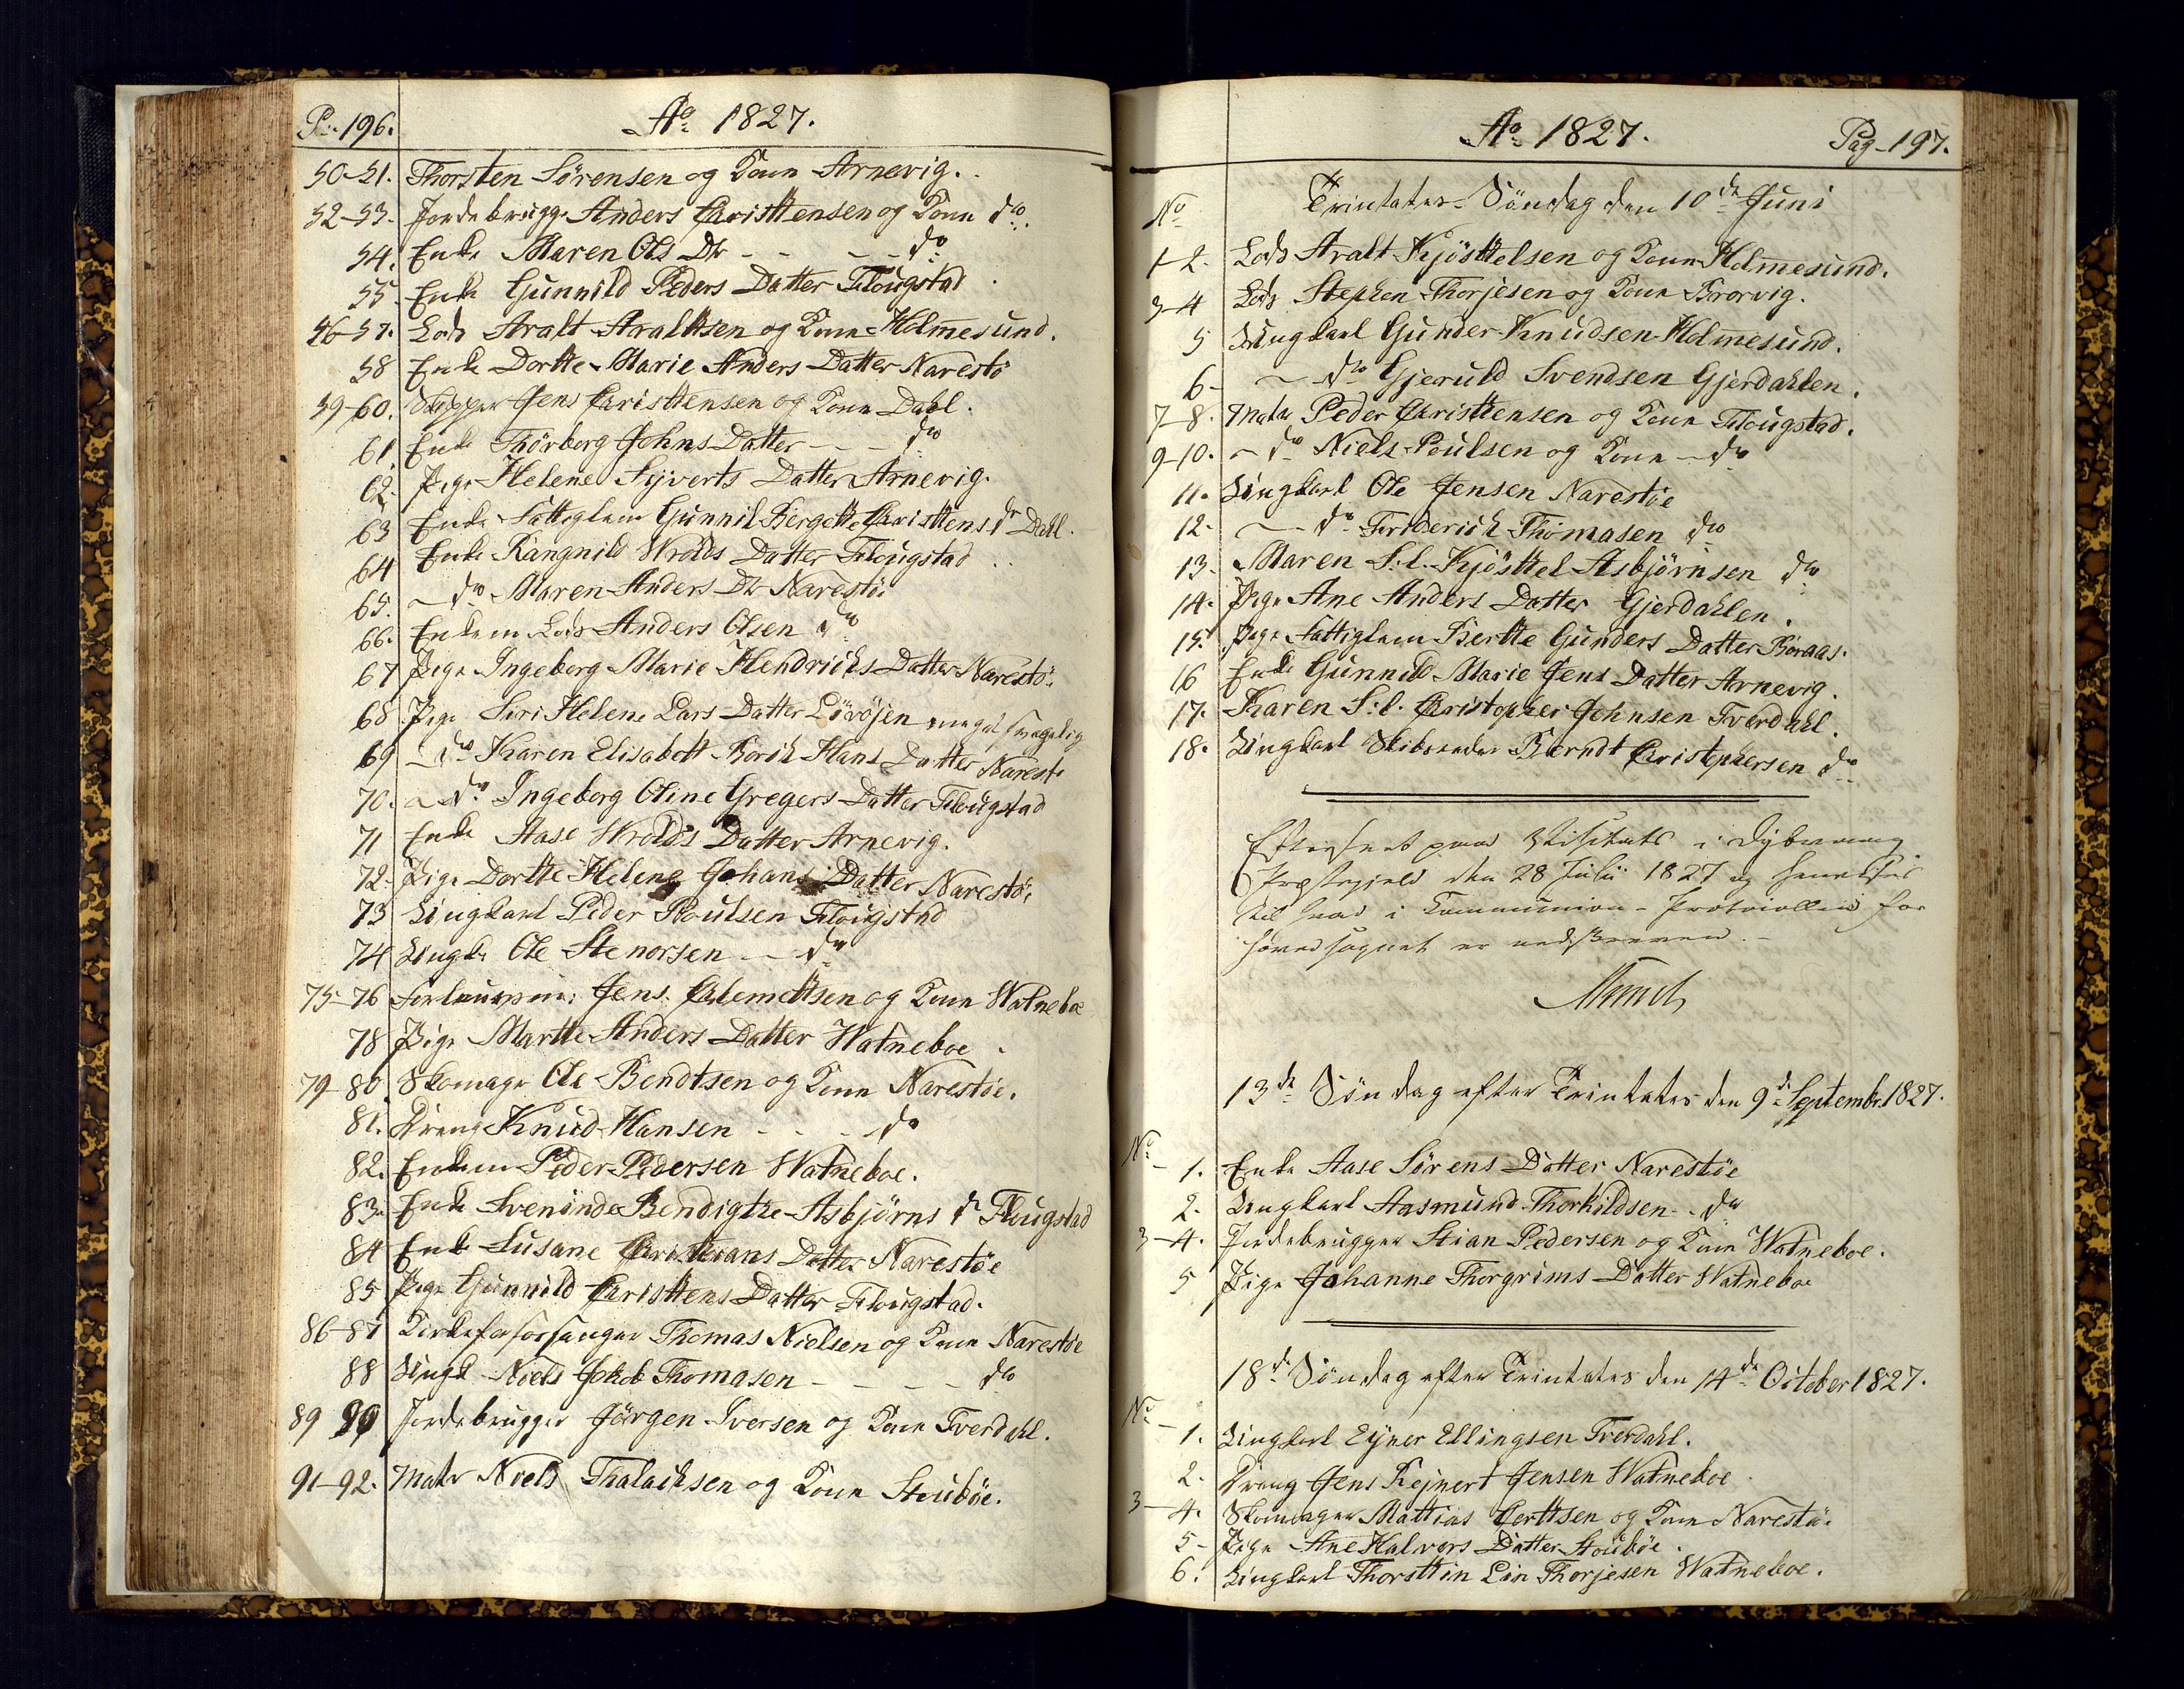 P. 196.
Ao 1827.
50-51. Thorsten Sörensen og Kone Arnevig.
52-53. Jordebrugge Anders Christensen og Kone do
54. Enke Maren Ols Dr - - - - do
55. Enke Gunnild Peders Datter Flougstad
56-57. Lods Aralt Araltsen og Kone Holmesund.
58 Enke Dortte Marie Anders Datter Narestö
59-60. Skipper Jens Christensen og Kone Dahl.
61. Enke Thorborg Johns Datter - - do
62. Pige Helene Syverts Datter Arnevig.
63 Enke Fattiglem Gunnil Birgette Christens Dr Dahl.
64 Enke Rangnild Wrolds Datter Flougstad
65. - do Maren Anders Dr Narestöe
66. Enkem Lods Anders Olsen do
67 Pige Ingeborg Marie Hendrichs Datter Narestöe
68. Pige Siri Helene Lars Datter Lövöjen meget svagelig
69 - do Karen Elisabett Borik Hans Datter Narestö
70. - do Ingeborg Oline Gregers Datter Flougstad
71 Enke Aase Wrolds Datter Arnevig.
72. Pige Dortte Helene Johans Datter Narestöe
73 Ungkarl Peder Poulsen Flougstad
74 Ungk. Ole Stenorsen - do
75-76 Jens Clemettsen og Kone Watneboe
78 Pige Martte Anders Datter Watneboe.
79-80. Skomager Ole Bendtsen og Kone Narestöe.
81. Dreng Knud Hansen - - - do
82. Enkem Peder Pedersen Watneboe.
83. Enke Sveninde Bendigthe Asbjörns Dr Flougstad
84 Enke Susane Christians Datter Narestöe
85 Pige Gunnild Christens Datter Flougstad.
86-87 Kirkeforsanger Thomas Nielsen og Kone Narestöe
88 Ungk. Niels Jakob Thomasen - - - - do
89 90 Jordebrugger Jörgen Iversen og Kone Tverdahl.
91-92. Matr Niels Thalachsen og Kone Stoüböe.
Ao 1827. Pag. 197.
No Trinitates Söndag den 10de Juni
1-2. Lods Aralt Kjösttelsen og Kone Holmesund.
3-4 Lods Stephen Thorjesen og Kone Brorvig.
5 Ungkarl Gunder Knudsen Holmesund.
6- - do Gjeruld Svendsen Gjerdahlen.
7-8. Matr Peder Christensen og Kone Flougstad.
9-10. - do Niels Poulsen og Kone - do
11. Ungkarl Ole Jensen Narestöe
12. - do Friderich Thomasen do
13. Maren S:l. Kjösttel Asbjörnsen do
14. Pige Ane Anders Datter Gjerdahlen.
15. Pige Fattiglem Bertte Gunders Datter Boraas.
16 Enke Gunnild Marie Jens Datter Arnevig.
17. Karen S:l. Christopher Johnsen Tverdahl.
18. Ungkarl Skibsreder Berndt Christophersen do
Efterseet paa Visitats i Dybvaag
Præstegjeld den 28 Julii 1827 og henvises
til hvad i Communion-Protocollen for
Hovedsognet er nedskreven. -
Munch
13de Söndag efter Trinitates den 9de Septembr. 1827.
No
1. Enke Aase Sörens Datter Narestöe
2. Ungkarl Aasmund Thorkildsen - do
3-4. Jordebrugger Stian Pedersen og Kone Watneboe.
5 Pige Johanne Thorgrims Datter Watneboe
18de Söndag efter Trinitates den 14de October 1827.
No
1. Ungkarl Ejner Ellingsen Tverdahl.
2. Dreng Jens Rejnert Jensen Watneboe
3-4. Skomager Mattias Gerttsen og Kone Narestöe
5- Pige Ane Halvors Datter Stoüböe.
6. Ungkarl Thorsttin Lin Thorjesen Watneboe.